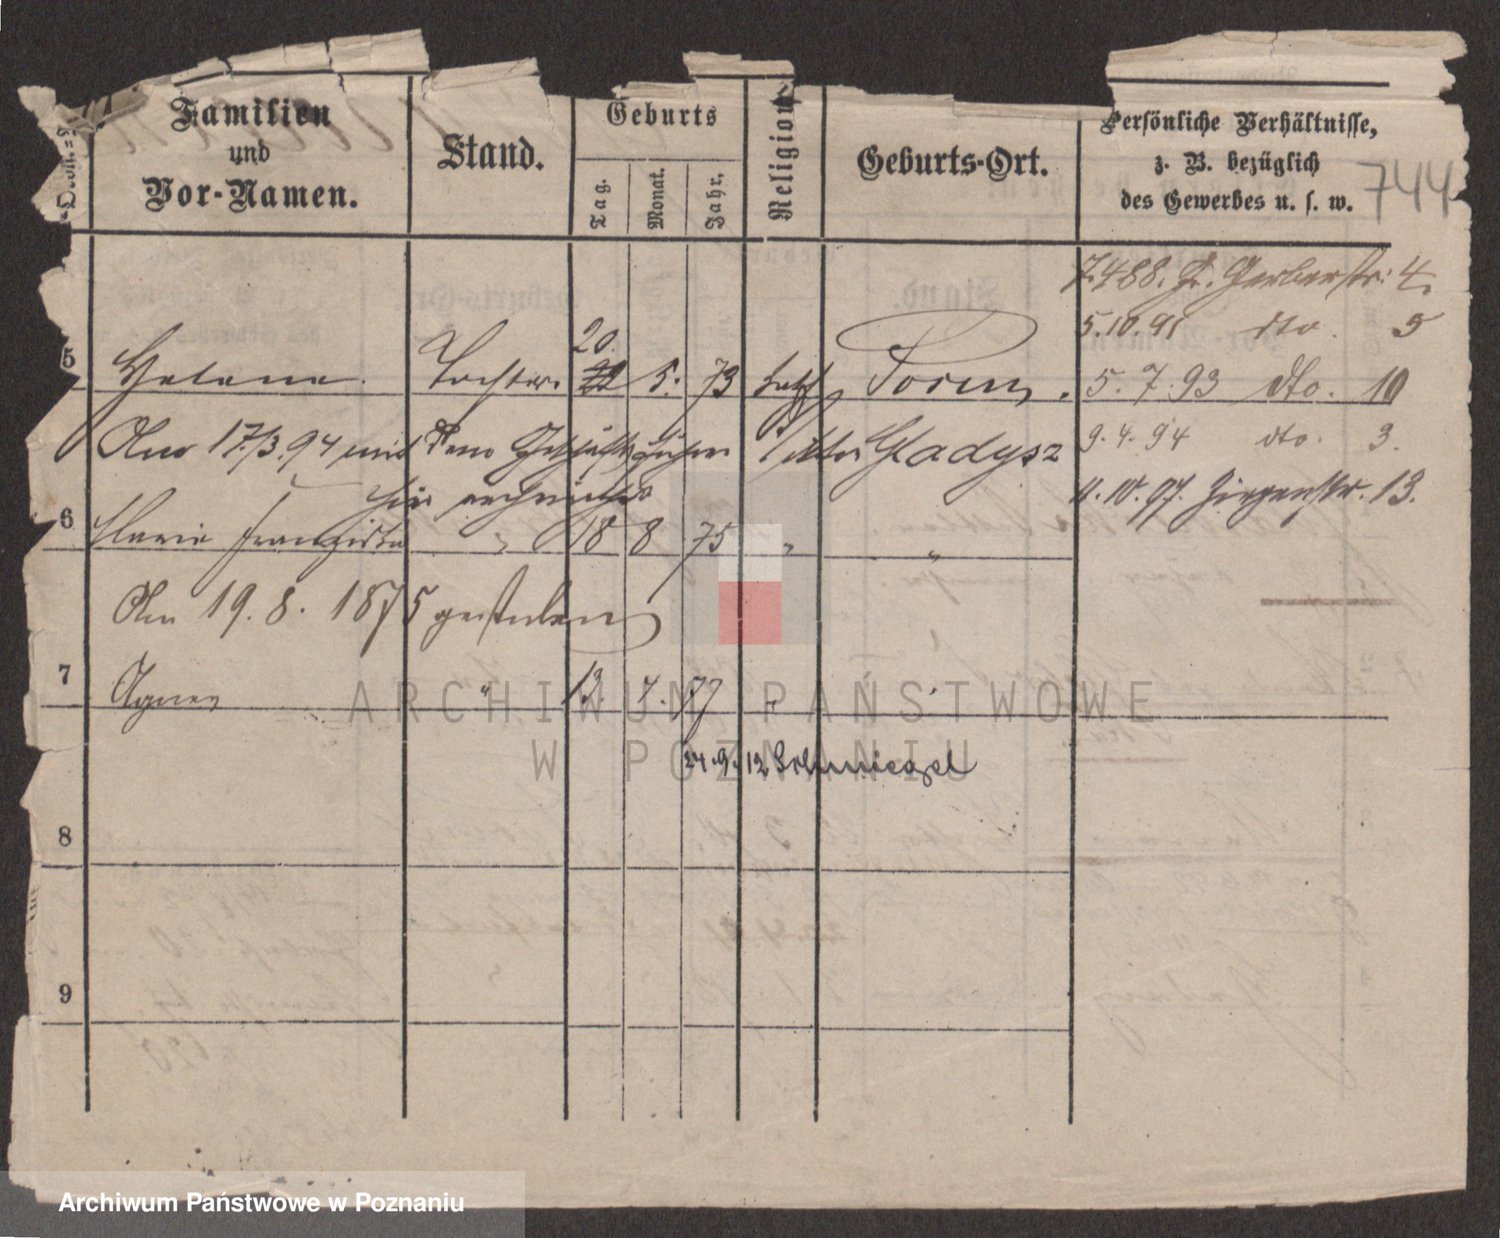 Familien
und
Vor-Namen.
Stand.
Geburts
Tag.
Monat.
Jahr.
Religion
Geburts-Ort.
Persönliche Verhältnisse,
z. B. bezüglich
des Gewerbes u. s. w.
744
7.4.88. Gr. Gerberstr. 4.
5.10.91 dto. 5
20.
5 Helene. Tochter. 22 5. 73 kath. Posen.
5.7.93 dto. 10
Am 17./3.94 mit dem Geschäftsführer Viktor Gladysz
9.4.94 dto. 3.
hier
4.10.97. Ziegenstr. 13.
6 Maria Franziska " 18 8 75 " "
Am 19.8.1875 gestorben
7 Agnes " 13. 7. 77 " "
24.9.12 Schmiegel
8
9
ARCHIWUM PAŃSTWOWE
W POZNANIU
Archiwum Państwowe w Poznaniu